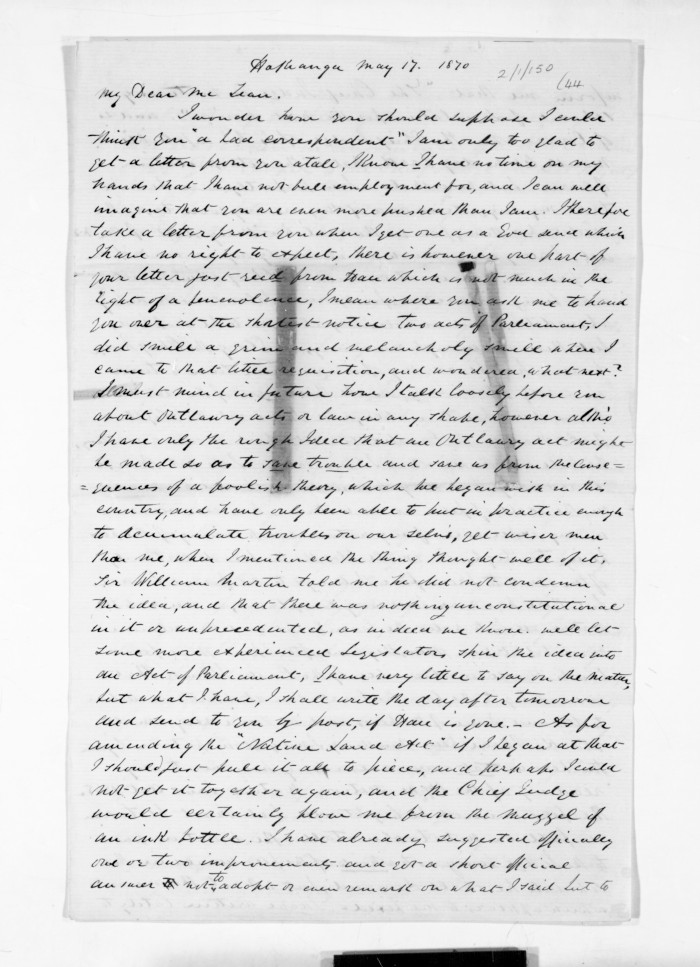 Hokianga May 17. 1870
2/1/150
(44
My Dear McLean.
I wonder how you should suphose I could
think you "a bad correspondent" I am only too glad to
get a letter from you atale, I know I have no time on my
hands that I have not full employment for, and I can well
imagine that you are even more pushed than I am. I therefore
take a letter from you when I get one as a God send which
I have no right to expect, there is however one part of
your letter just recd from Hau which is not much in the
light of a benevolence, I mean where you ask me to hand
you over at the shortest notice two acts of Parliament, I
did smile a grim and melancholy smile when I
came to that little requisition, and wondered, what next?
I must mind in future how I talk loosely before you
about Outlawry acts or law in any shape, however altho
I have only the rough Idea that an Outlawry act might
be made so as to save trouble and save us from the conse=
=quences of a foolish theory, which we began with in this
country, and have only been able to put in practice enough
to accumulate troubles on our selvs, yet wiser men
than me, when I mentioned the thing thought well of it.
Sir William Martin told me he did not condemn
the idea, and that there was nothing unconstitutional
in it or unpresedented, as indeed we know. well let
some more experienced Legislators spin the idea into
an Act of Parliament, I have very little to say on the matter,
but what I have, I shall write the day after tomorrow
and send to you by post, if Hau is gone. - As for
amending the "Native Land Act" if I began at that
I should just pull it all to pieces, and perhaps I could
not get it together again, and the Chief Judge
would certainly blow me from the muzzel of
an ink bottle. I have already suggested officially
one or two improvements and got a short official
answer not to adopt or even remark on what I said but to